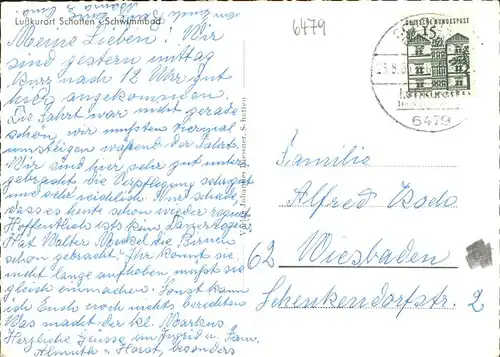 Luftkurort Schotten, Schwimmbad
6479
Meine Lieben! Wir
sind gestern mittag
kurz nach 12 Uhr gut
hier angekommen.
Die Fahrt war nicht gerade
schön, wir mußten viermal
umsteigen während der Fahrt.
Wir sind hier sehr gut unter
gebracht die Verpflegung sehr gut
und sehr reichlich. Nur schade
dass es heute schon wieder regnet
Hoffentlich ists kein Dauerregen
Hat Walter die Birnen
schon gebracht? Ihr könnt sie
nicht lange aufheben müßt sie
gleich einmachen. Sonst kann
ich Euch noch nichts berichten
Was macht der kl. Markus
Herzliche Grüsse an Ingrid u. Fam.
Almuth u. Horst, besonders
Verlag Johannes Messner, Schotten
DEUTSCHE BUNDESPOST
15
Luftkurort
6479
Familie
Alfred
62 Wiesbaden
Schenkendorfstr. 2